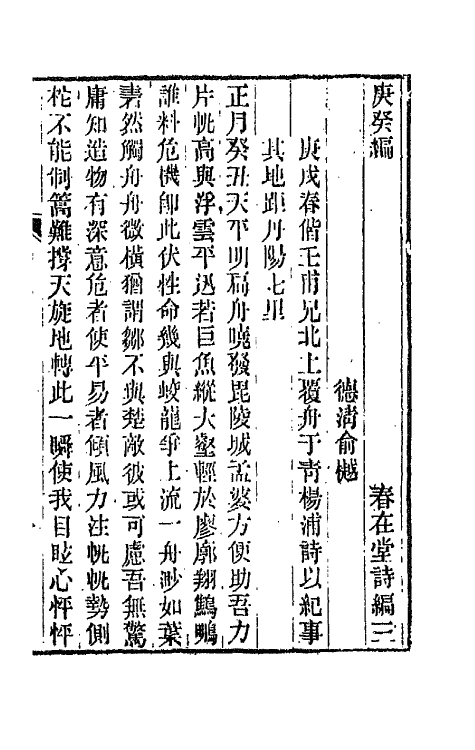 庚癸編　　　　　　　　春在堂詩編三
德淸俞樾
庚戌春偕壬甫兄北上覆舟于靑楊浦詩以紀事
其地距丹陽七里
正月癸丑天平明扁舟曉發毘陵城孟婆方便助吾力
片㠶高與浮雲平迅若巨魚縱大壑輕於廖廓翔鷦鵬
誰料危機卽此伏性命幾與蛟龍爭上流一舟眇如葉
砉然觸舟舟微橫猶謂鄒不與楚敵彼或可慮吾無驚
庸知造物有深意危者使平易者傾風力注㠶㠶勢側
柁不能制篙難撐天旋地轉此一瞬使我目眩心怦怦